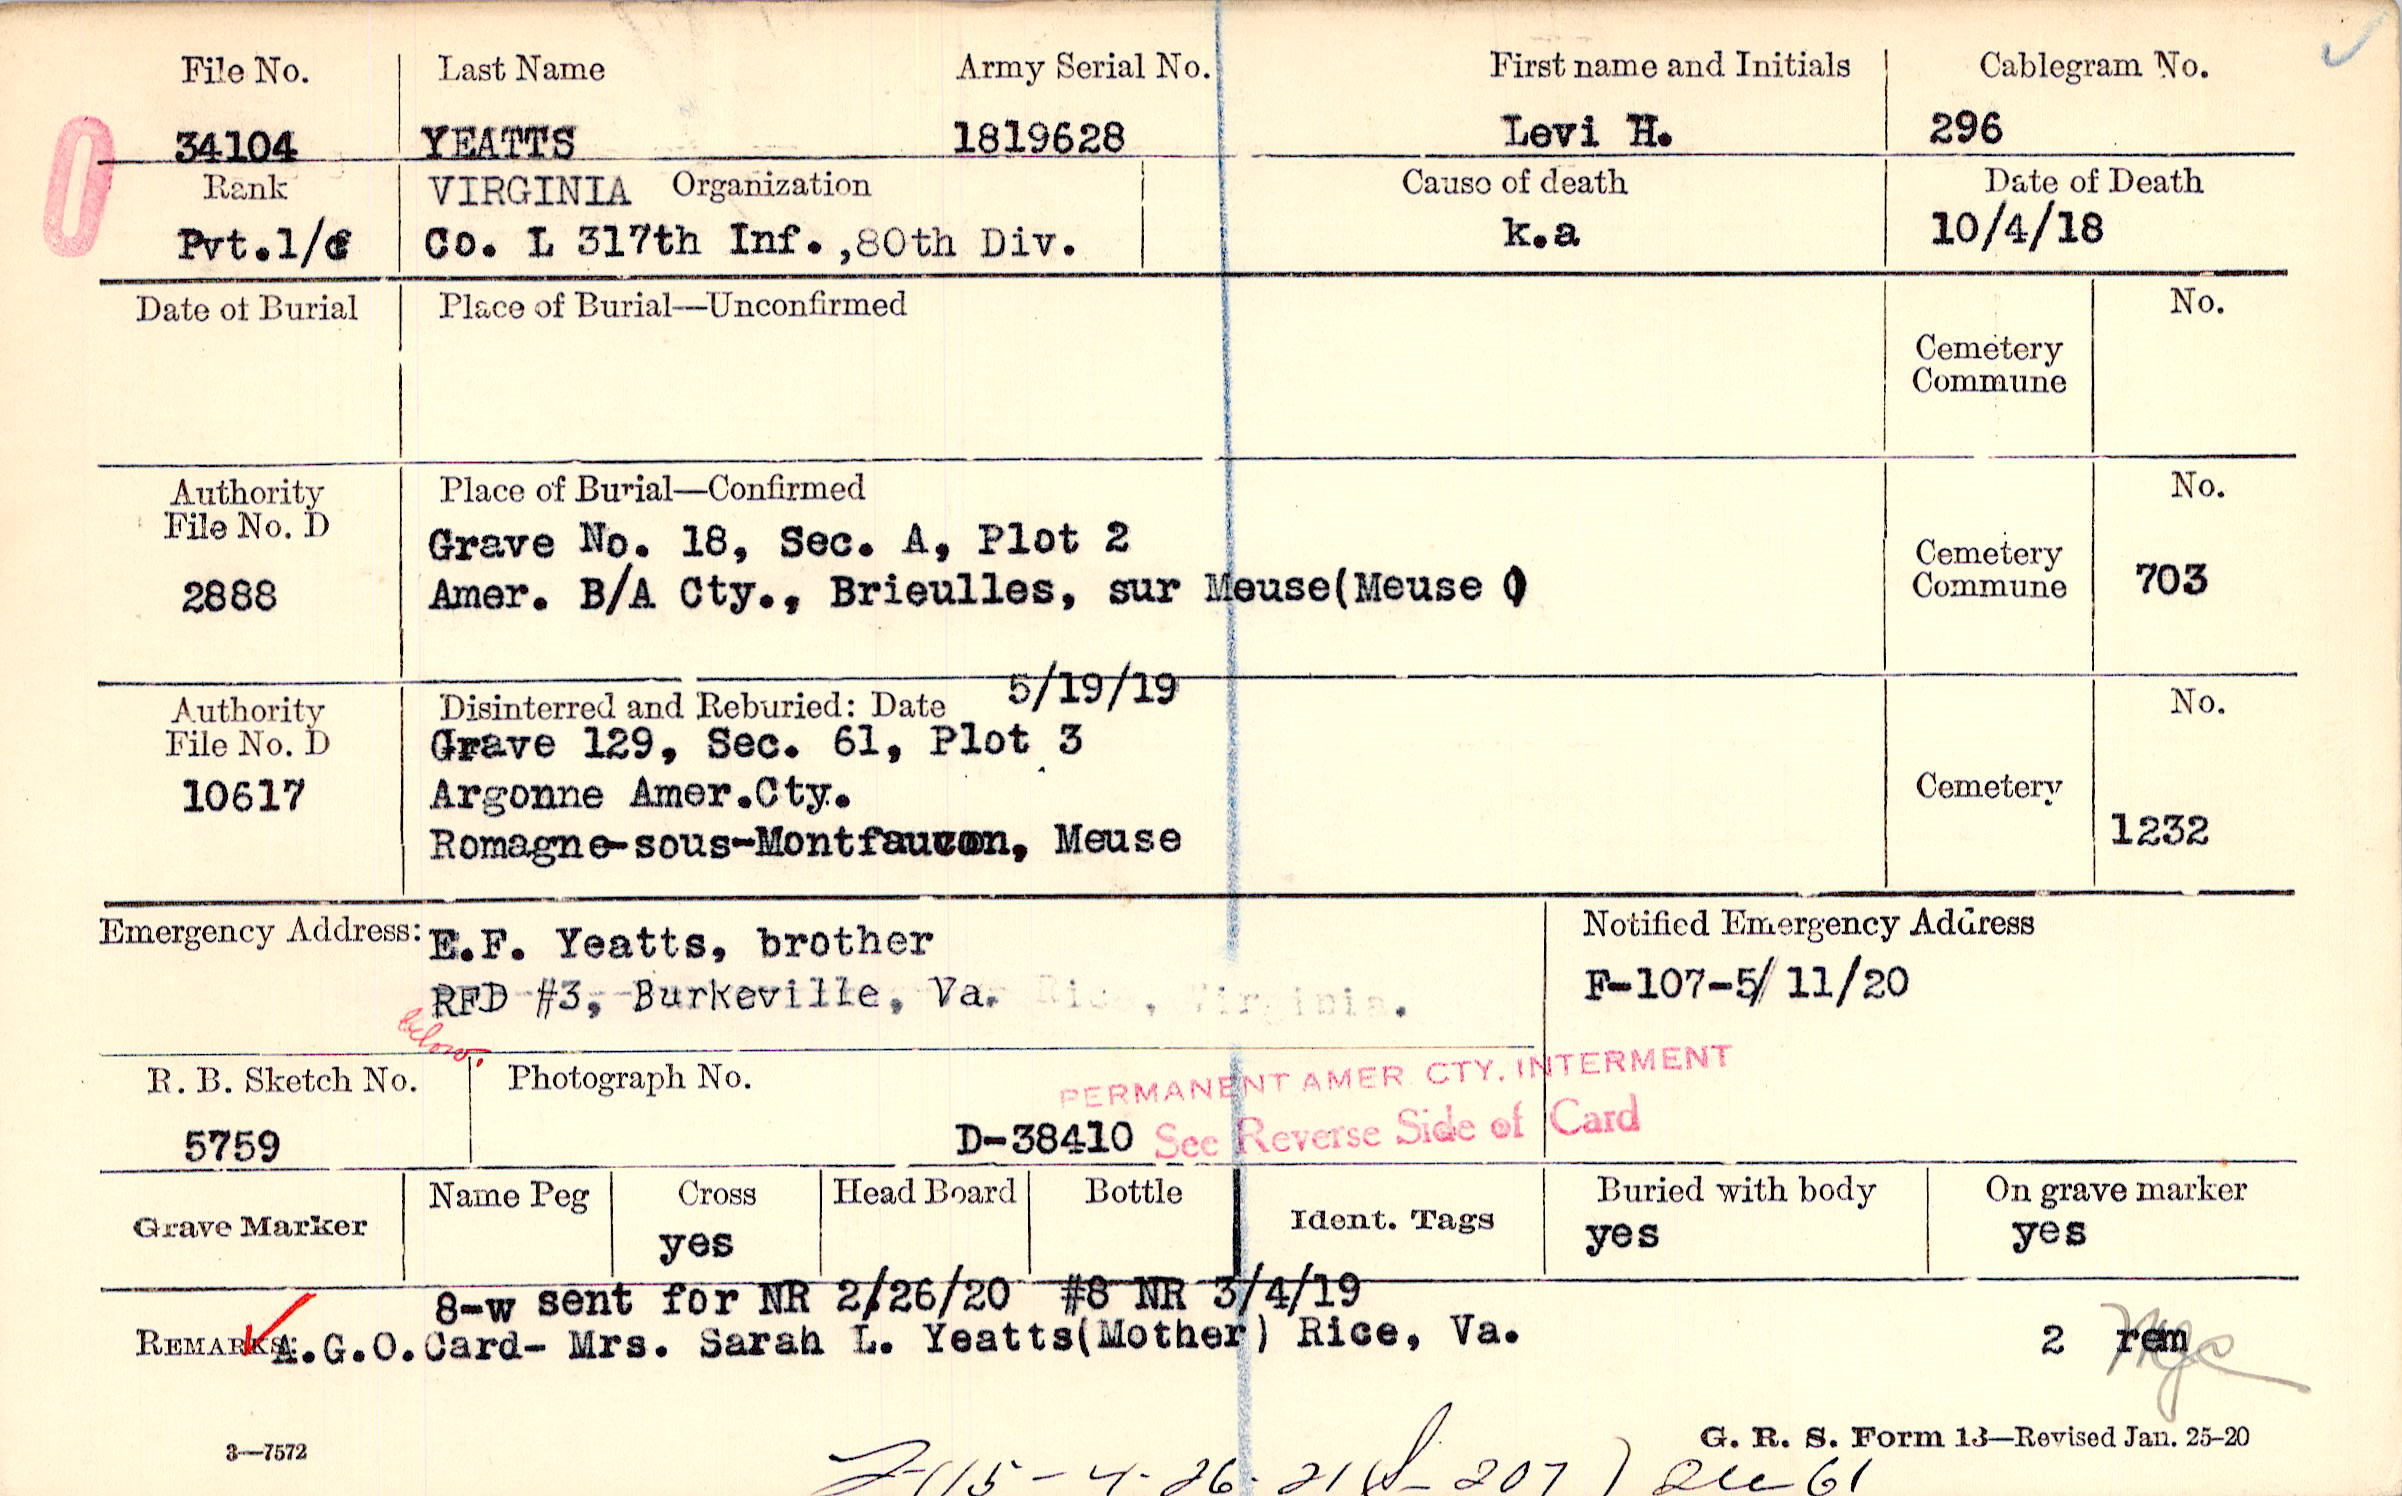 File No. Last Name Army Serial No. First name and Initials Cablegram No.
34104 YEATTS 1819628 Levi H. 296
Rank VIRGINIA Organization Cause of death Date of Death
Pvt.1/c Co. L 317th Inf.,80th Div. k.a 10/4/18
Date of Burial Place of Burial—Unconfirmed No.
Cemetery
Commune
Authority Place of Burial—Confirmed No.
File No. D Grave No. 18, Sec. A, Plot 2
Cemetery
2888 Amer. B/A Cty., Brieulles, sur Meuse(Meuse ) Commune 703
5/19/19
Authority Disinterred and Reburied: Date No.
File No. D Grave 129, Sec. 61, Plot 3
10617 Argonne Amer.Cty. Cemetery
Romagne-sous-Montfaucon, Meuse 1232
Emergency Address: E.F. Yeatts, brother Notified Emergency Address
RFD #3, Burkeville, Va. Rice, Virginia. F-107-5/11/20
below.
R. B. Sketch No. Photograph No. PERMANENT AMER CTY. INTERMENT
5759 D-38410 See Reverse Side of Card
Grave Marker Name Peg Cross Head Board Bottle Ident. Tags Buried with body On grave marker
yes yes yes
8-w sent for NR 2/26/20 #8 NR 3/4/19
REMARKS: A.G.O.Card- Mrs. Sarah L. Yeatts(Mother) Rice, Va. 2 rem
3—7572 G. R. S. Form 13—Revised Jan. 25-20
15-4-26-21 207) 61